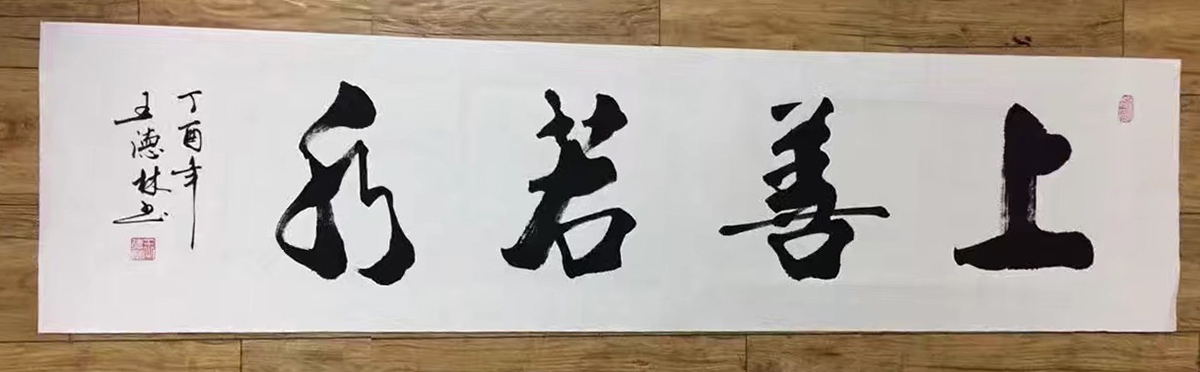 上善若水
丁酉年
王德林书